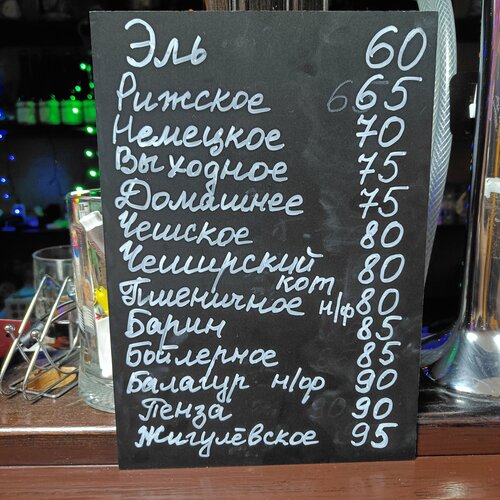 Эль 60
Рижское 65
Немецкое 70
Выходное 75
Домашнее 75
Чешское 80
Чеширский кот 80
Пшеничное н/ф 80
Барин 85
Бойлерное 85
Балагур н/ф 90
Пенза 90
Жигулёвское 95